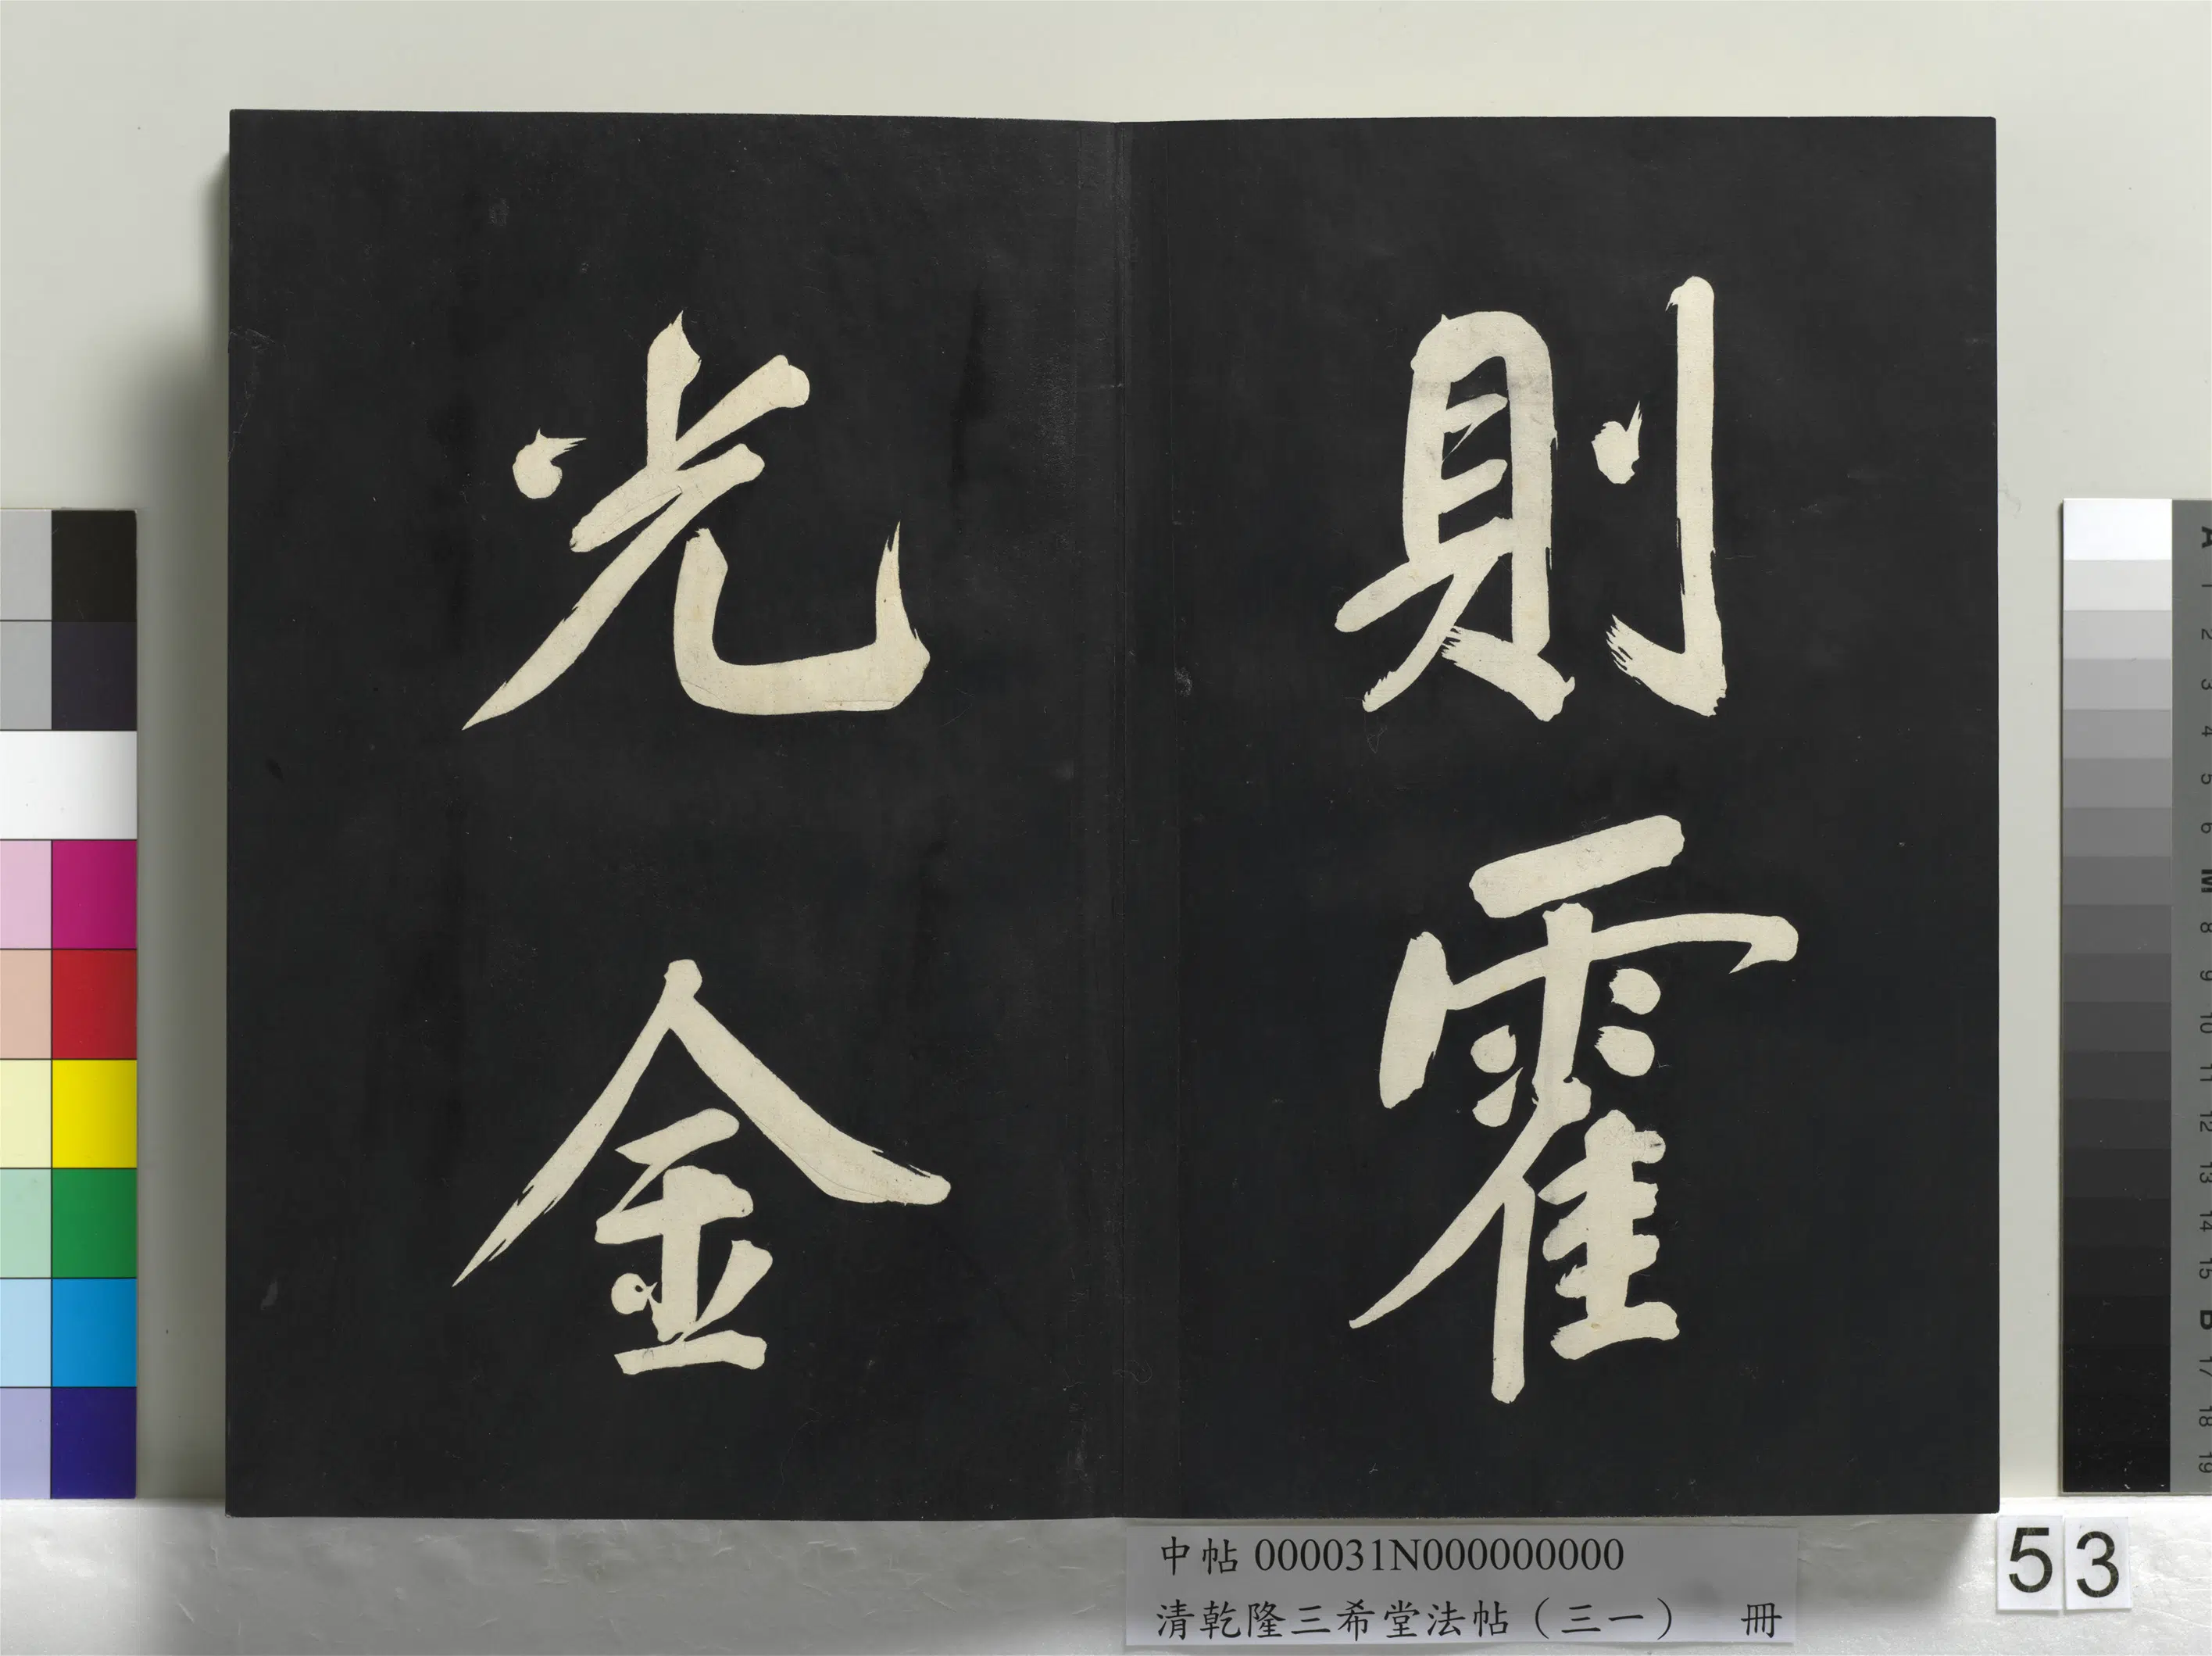 則霍
光金
中帖 000031N000000000
清乾隆三希堂法帖（三一） 冊
53
A
1
2
3
4
5
6
M
8
9
10
11
12
13
14
15
B
17
18
19